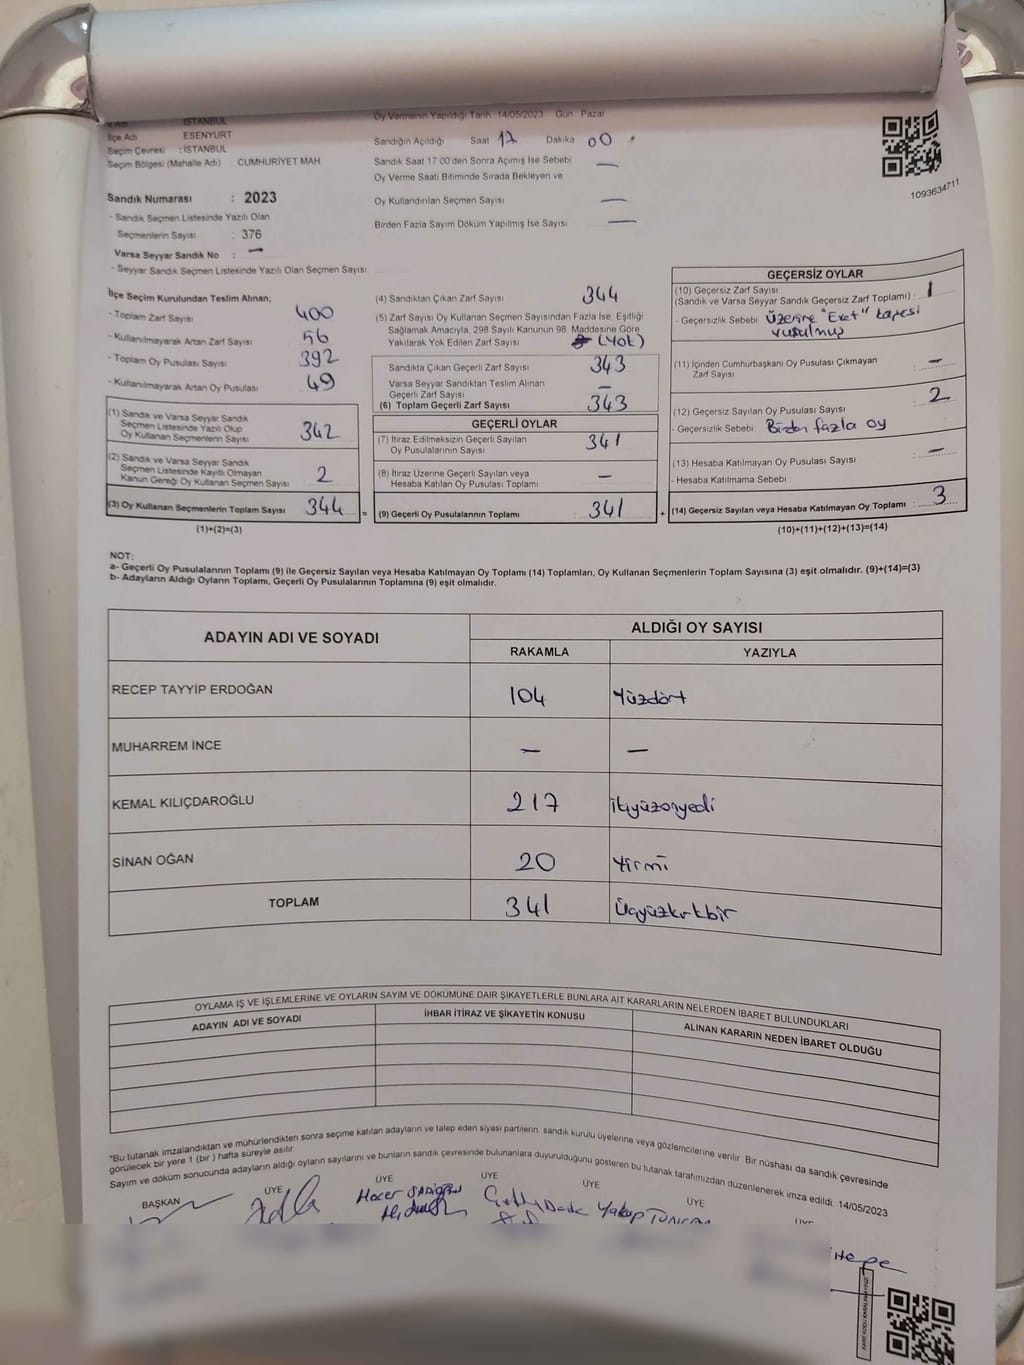 İSTANBUL
İlçe Adı ESENYURT
Seçim Çevresi : İSTANBUL
Seçim Bölgesi (Mahalle Adı) CUMHURİYET MAH
Sandık Numarası : 2023
- Sandık Seçmen Listesinde Yazılı Olan
Seçmenlerin Sayısı : 376
Varsa Seyyar Sandık No : —
- Seyyar Sandık Seçmen Listesinde Yazılı Olan Seçmen Sayısı
Oy Vermenin Yapıldığı Tarih 14/05/2023 Gün Pazar
Sandığın Açıldığı Saat 17 Dakika 00
Sandık Saat 17:00'den Sonra Açımış İse Sebebi —
Oy Verme Saati Bitiminde Sırada Bekleyen ve
Oy Kullandırılan Seçmen Sayısı —
Birden Fazla Sayım Döküm Yapılmış İse Sayısı —
1093634711
İlçe Seçim Kurulundan Teslim Alınan;
- Toplam Zarf Sayısı 400
- Kullanılmayarak Artan Zarf Sayısı 56
- Toplam Oy Pusulası Sayısı 392
- Kullanılmayarak Artan Oy Pusulası 49
(1) Sandık ve Varsa Seyyar Sandık
Seçmen Listesinde Yazılı Olup
Oy Kullanan Seçmenlerin Sayısı 342
(2) Sandık ve Varsa Seyyar Sandık
Seçmen Listesinde Kayıtlı Olmayan
Kanun Gereği Oy Kullanan Seçmen Sayısı 2
(3) Oy Kullanan Seçmenlerin Toplam Sayısı 344 =
(1)+(2)=(3)
(4) Sandıktan Çıkan Zarf Sayısı 344
(5) Zarf Sayısı Oy Kullanan Seçmen Sayısından Fazla İse, Eşitliği
Sağlamak Amacıyla, 298 Sayılı Kanunun 98. Maddesine Göre
Yakılarak Yok Edilen Zarf Sayısı (Yok)
Sandıkta Çıkan Geçerli Zarf Sayısı 343
Varsa Seyyar Sandıktan Teslim Alınan
Geçerli Zarf Sayısı —
(6) Toplam Geçerli Zarf Sayısı 343
GEÇERLİ OYLAR
(7) İtiraz Edilmeksizin Geçerli Sayılan
Oy Pusulalarının Sayısı 341
(8) İtiraz Üzerine Geçerli Sayılan veya
Hesaba Katılan Oy Pusulası Toplamı —
(9) Geçerli Oy Pusulalarının Toplamı : 341 +
GEÇERSİZ OYLAR
(10) Geçersiz Zarf Sayısı
(Sandık ve Varsa Seyyar Sandık Geçersiz Zarf Toplamı) : 1
- Geçersizlik Sebebi Üzerine "Evet" kaşesi
vurulmuş
(11) İçinden Cumhurbaşkanı Oy Pusulası Çıkmayan
Zarf Sayısı : —
(12) Geçersiz Sayılan Oy Pusulası Sayısı : 2
- Geçersizlik Sebebi Birden fazla oy
(13) Hesaba Katılmayan Oy Pusulası Sayısı : —
- Hesaba Katılmama Sebebi
(14) Geçersiz Sayılan veya Hesaba Katılmayan Oy Toplamı : 3
(10)+(11)+(12)+(13)=(14)
NOT:
a- Geçerli Oy Pusulalarının Toplamı (9) ile Geçersiz Sayılan veya Hesaba Katılmayan Oy Toplamı (14) Toplamları, Oy Kullanan Seçmenlerin Toplam Sayısına (3) eşit olmalıdır. (9)+(14)=(3)
b- Adayların Aldığı Oyların Toplamı, Geçerli Oy Pusulalarının Toplamına (9) eşit olmalıdır.
ADAYIN ADI VE SOYADI ALDIĞI OY SAYISI
RAKAMLA YAZIYLA
RECEP TAYYİP ERDOĞAN 104 Yüzdört
MUHARREM İNCE — —
KEMAL KILIÇDAROĞLU 217 İkiyüzonyedi
SİNAN OĞAN 20 Yirmi
TOPLAM 341 Üçyüzkırkbir
OYLAMA İŞ VE İŞLEMLERİNE VE OYLARIN SAYIM VE DÖKÜMÜNE DAİR ŞİKAYETLERLE BUNLARA AİT KARARLARIN NELERDEN İBARET BULUNDUKLARI
ADAYIN ADI VE SOYADI İHBAR İTİRAZ VE ŞİKAYETİN KONUSU ALINAN KARARIN NEDEN İBARET OLDUĞU
*Bu tutanak imzalandıktan ve mühürlendikten sonra seçime katılan adayların ve talep eden siyasi partilerin sandık kurulu üyelerine veya gözlemcilerine verilir. Bir nüshası da sandık çevresinde
görülecek bir yere 1 (bir) hafta süreyle asılır.
Sayım ve döküm sonucunda adayların aldığı oyların sayılarını ve bunların sandık çevresinde bulunanlara duyurulduğunu gösteren bu tutanak tarafımızdan düzenlenerek imza edildi. 14/05/2023
BAŞKAN ÜYE ÜYE ÜYE ÜYE ÜYE
Hacer
Yakup